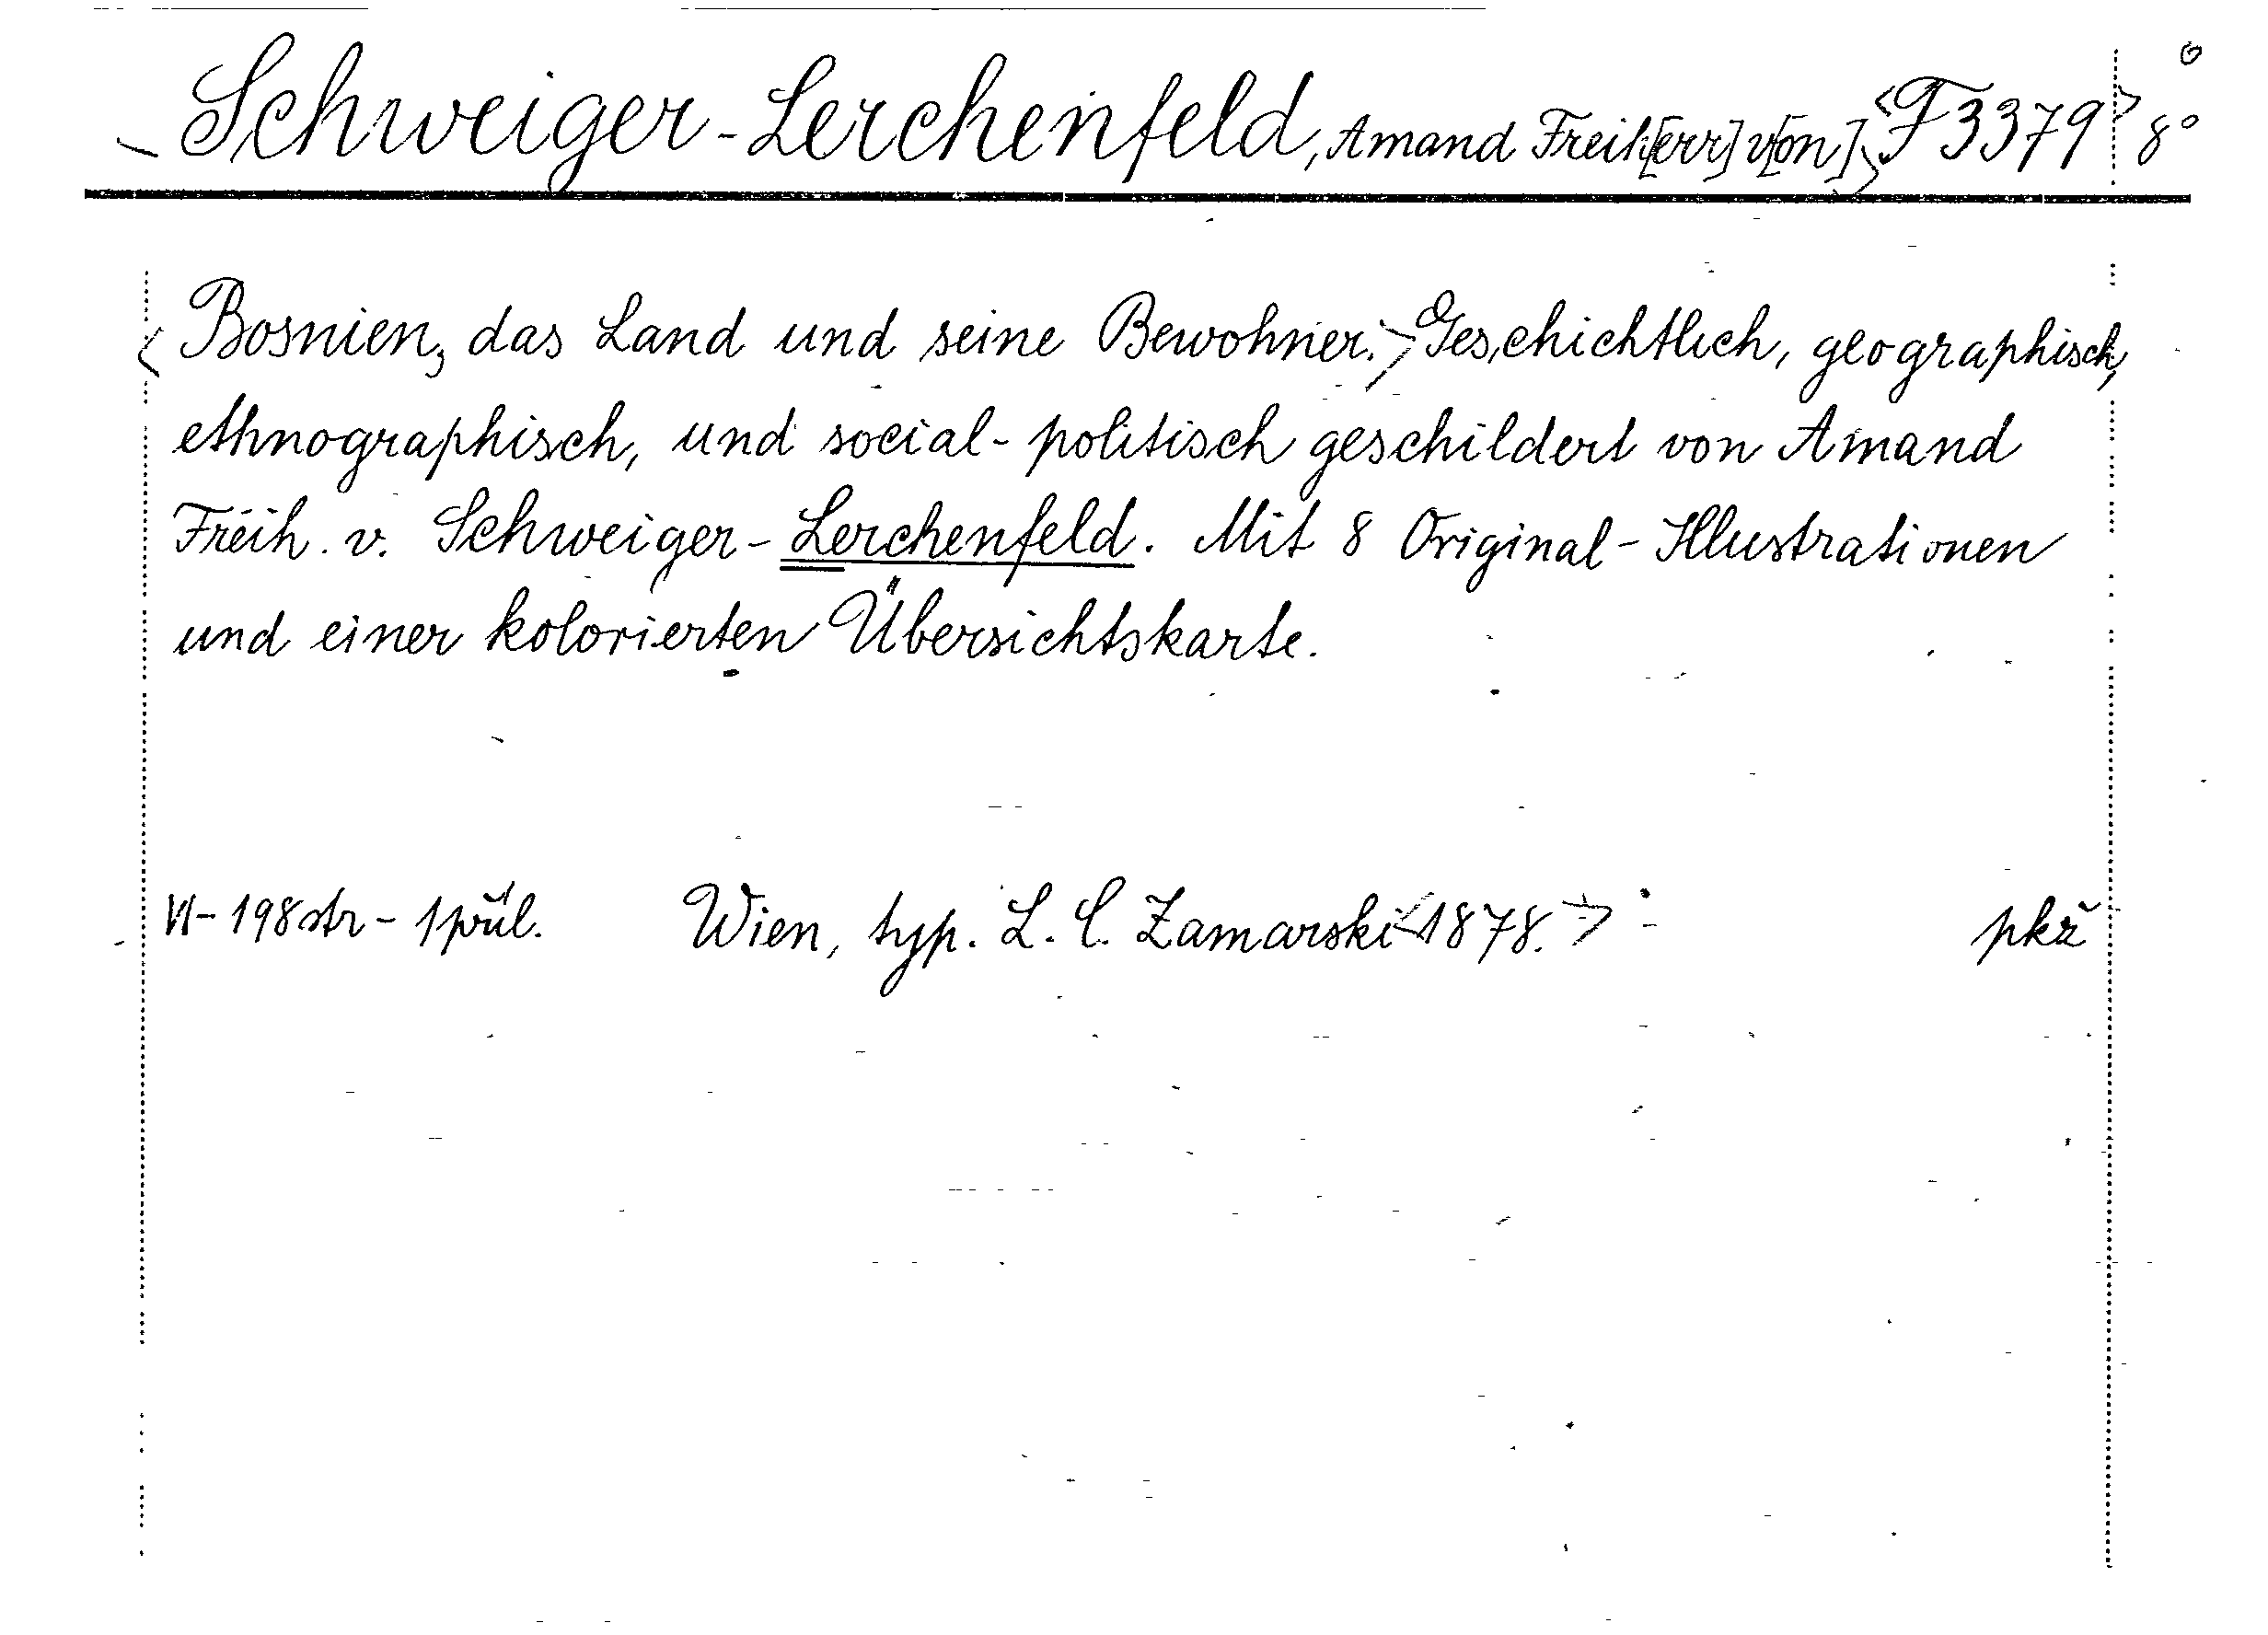 Schweiger-Lerchenfeld, Amand Freih[err] v[on] <F 3379> 8°
<Bosnien, das Land und seine Bewohner.> Geschichtlich, geographisch,
ethnographisch, und social-politisch geschildert von Amand
Freih. v. Schweiger-Lerchenfeld. Mit 8 Original-Illustrationen
und einer kolorierten Übersichtskarte.
VI-198 str - 1 příl. Wien, typ. L. C. Zamarski <1878.> pkž